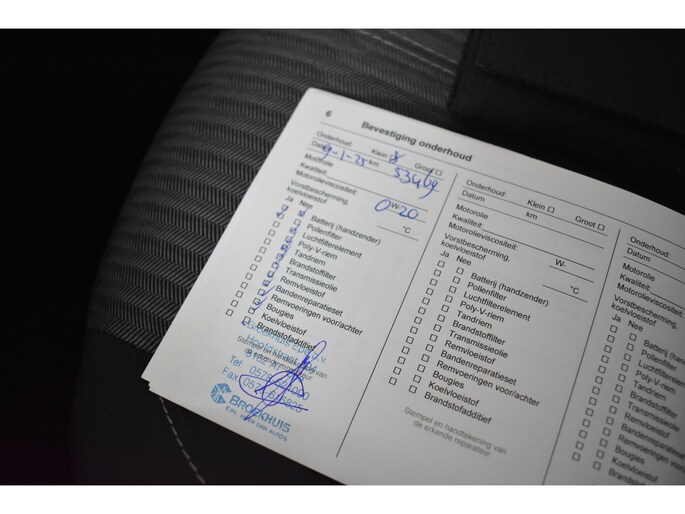 6
Bevestiging onderhoud
Onderhoud: Klein Groot
Datum 9-1-25 km 53469
Motorolie
Kwaliteit:
Motorolieviscositeit: 0W-20
Vorstbescherming, koelvloeistof °C
Ja Nee
Batterij (handzender)
Pollenfilter
Luchtfilterelement
Poly-V-riem
Tandriem
Brandstoffilter
Transmissieolie
Remvloeistof
Bandenreparatieset
Remvoeringen voor/achter
Bougies
Koelvloeistof
Brandstofadditief
Stempel en handtekening van
de erkende reparateur
Tel. 0578
Fax
BROEKHUIS
EPE MEER DAN AUTO'S
Onderhoud: Klein Groot
Datum km
Motorolie
Kwaliteit:
Motorolieviscositeit: W-
Vorstbescherming,
koelvloeistof °C
Ja Nee
Batterij (handzender)
Pollenfilter
Luchtfilterelement
Poly-V-riem
Tandriem
Brandstoffilter
Transmissieolie
Remvloeistof
Bandenreparatieset
Remvoeringen voor/achter
Bougies
Koelvloeistof
Brandstofadditief
Stempel en handtekening van
de erkende reparateur
Onderhoud:
Datum
Motorolie
Kwaliteit:
Motorolieviscositeit
Vorstbescherming,
koelvloeistof
Ja Nee
Batterij (ha
Pollenfilter
Luchtfilterele
Poly-V-riem
Tandriem
Brandstoffilter
Transmissieoli
Remvloeistof
Bandenreparati
Remvoeringen v
Bougies
Koelvloeistof
Brandstofadditie
Stempel en handteke
de erkende repara